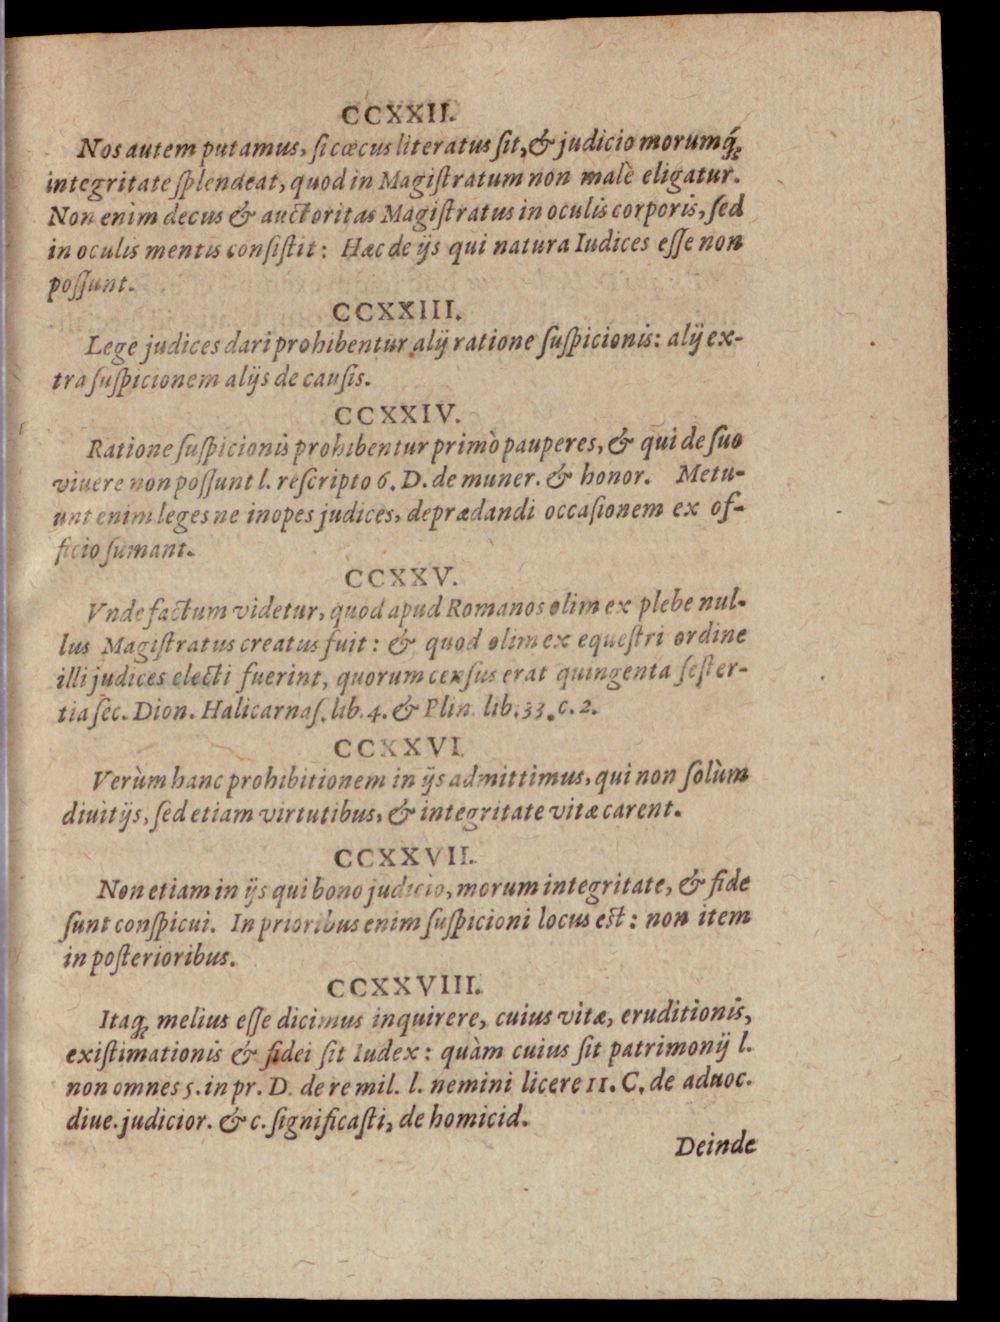 CCXXII.
Nos autem putamus, ſi cæcus literatus ſit, & judicio morumq́;
integritate ſplendeat, quod in Magiſtratum non malè eligatur.
Non enim decus & auctoritas Magiſtratus in oculis corporis, ſed
in oculis mentis conſiſtit: Hæc de ijs qui natura Iudices eſſe non
poſſunt.
CCXXIII.
Lege judices dari prohibentur alij ratione ſuſpicionis: alij ex-
tra ſuſpicionem alijs de cauſis.
CCXXIV.
Ratione ſuſpicionis prohibentur primò pauperes, & qui de ſuo
viuere non poſſunt l. reſcripto 6. D. de muner. & honor. Metu-
unt enim leges ne inopes judices, deprædandi occaſionem ex of-
ficio ſumant.
CCXXV.
Vnde factum videtur, quod apud Romanos olim ex plebe nul-
lus Magiſtratus creatus fuit: & quod olim ex equeſtri ordine
illi judices electi fuerint, quorum cenſus erat quingenta ſeſter-
tia ſec. Dion. Halicarnaſ. lib. 4. & Plin. lib. 33. c. 2.
CCXXVI.
Verùm hanc prohibitionem in ijs admittimus, qui non ſolùm
diuitijs, ſed etiam virtutibus, & integritate vitæ carent.
CCXXVII.
Non etiam in ijs qui bono judicio, morum integritate, & fide
ſunt conſpicui. In prioribus enim ſuſpicioni locus eſt: non item
in poſterioribus.
CCXXVIII.
Itaq; melius eſſe dicimus inquirere, cuius vitæ, eruditionis,
exiſtimationis & fidei ſit Iudex: quàm cuius ſit patrimonij l.
non omnes 5. in pr. D. de re mil. l. nemini licere 11. C. de aduoc.
diue. judicior. & c. ſignificaſti, de homicid.
Deinde